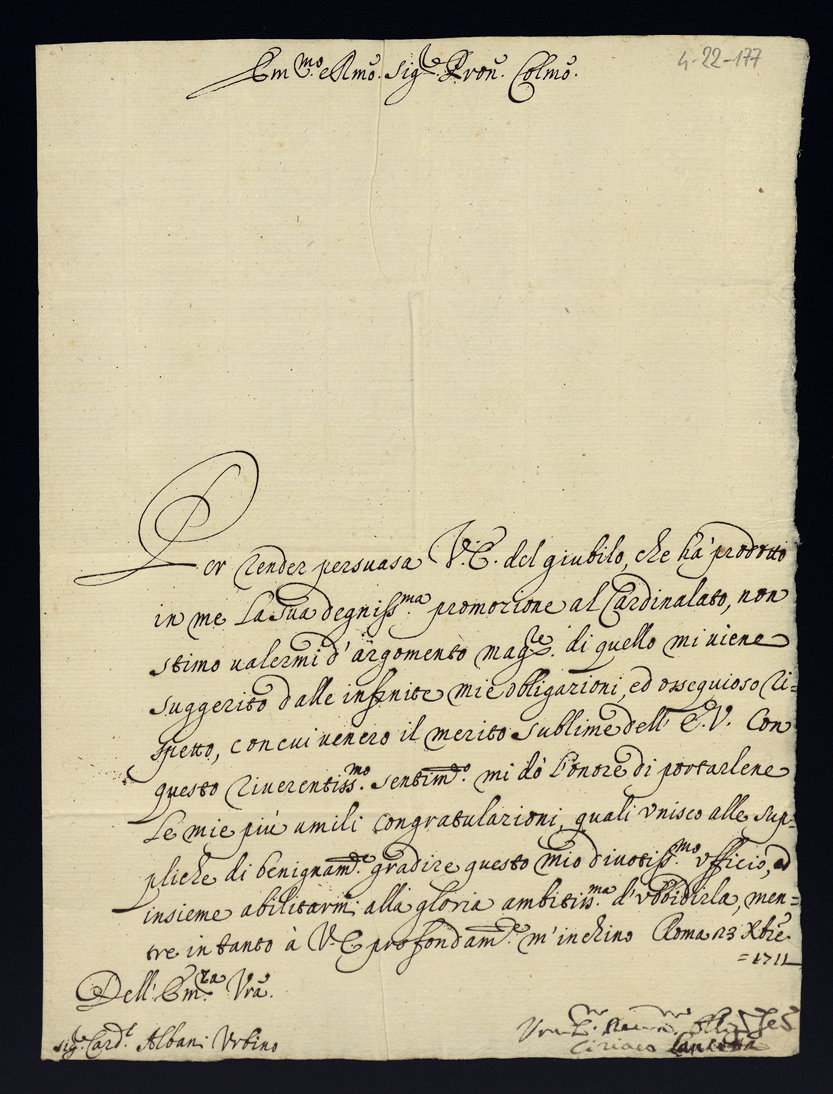 4-22-177
Em.mo e Rmo. Sig.re Pron. Colmo.
Per render persuasa V.E. del giubilo, che hà prodotto
in me la sua degniss.ma promozione al Cardinalato, non
stimo valermi d'argomento mag.re di quello mi viene
suggerito dalle infinite mie obligazioni, ed ossequioso ri=
spetto, con cui venero il merito sublime dell'E.V. Con
questo riverentiss.mo sentim.to mi dò l'onore di portarlene
le mie più umili congratulazioni, quali unisco alle sup=
pliche di benignam.te gradire questo mio divotiss.mo ufficio, ed
insieme abilitarmi alla gloria ambitiss.ma d'ubbidirla, men=
tre in tanto à V.E. profondam.te m'inchino Roma 23 Xbre
=1711
Dell'Em.za Vra.
Sig.r Card.l Albani Urbino
Ciriaco Lancetta